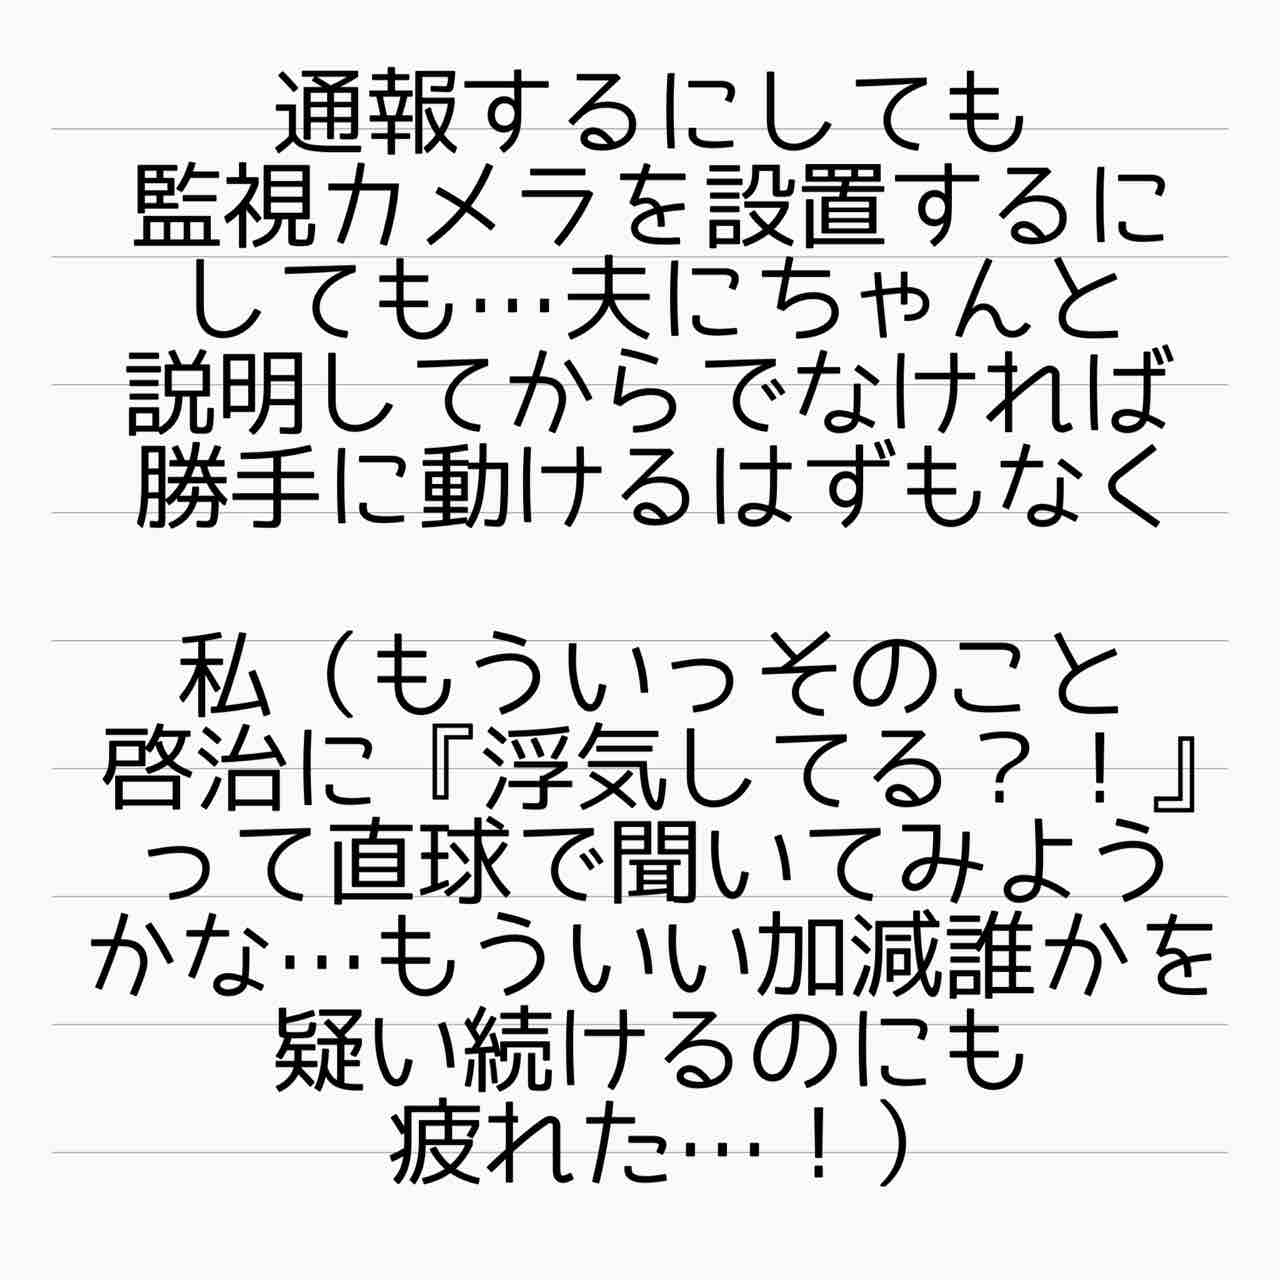 通報するにしても
監視カメラを設置するに
しても…夫にちゃんと
説明してからでなければ
勝手に動けるはずもなく
私（もういっそのこと
啓治に『浮気してる？！』
って直球で聞いてみよう
かな…もういい加減誰かを
疑い続けるのにも
疲れた…！）